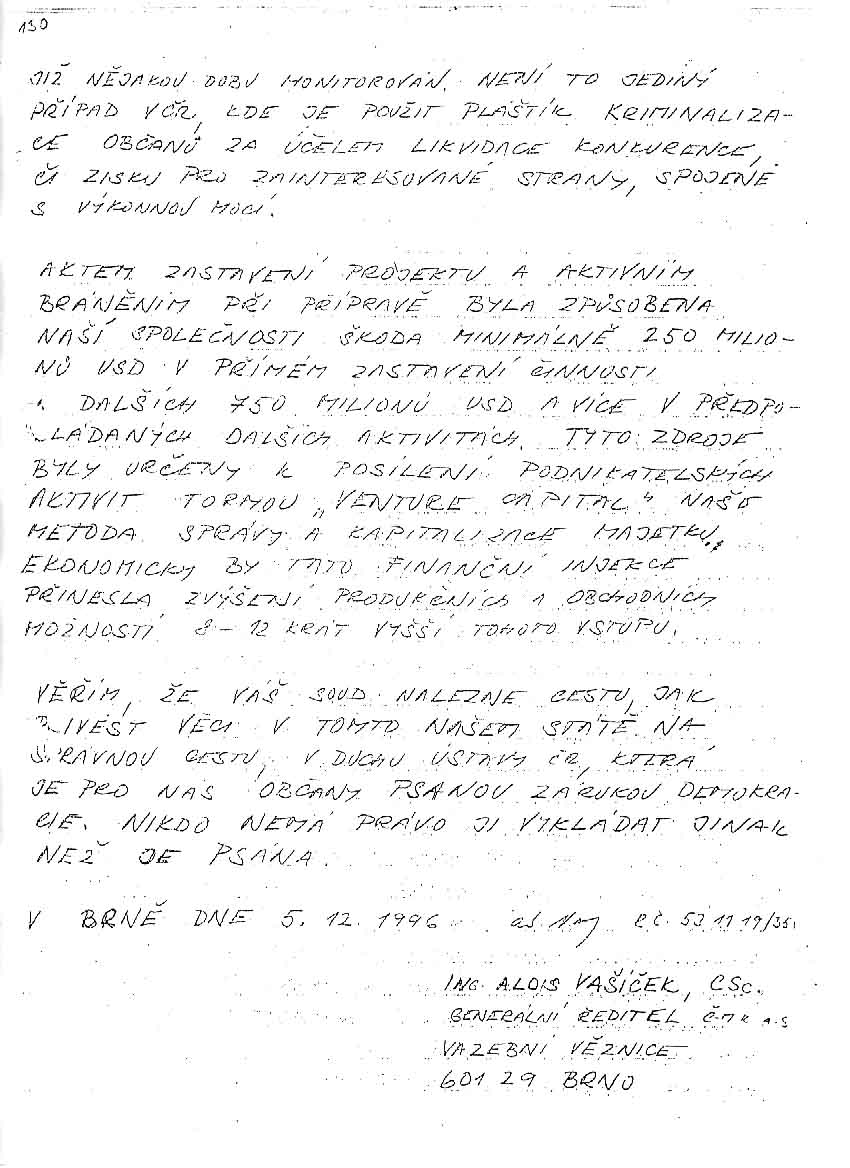 130
JIŽ NĚJAKOU DOBU MONITOROVÁN. NENÍ TO JEDINÝ
PŘÍPAD V ČR, KDE JE POUŽIT PLÁŠTÍK KRIMINALIZA-
CE OBČANŮ ZA ÚČELEM LIKVIDACE KONKURENCE,
ČI ZISKU PRO ZAINTERESOVANÉ STRANY, SPOJENÉ
S VÝKONNOU MOCÍ.
AKTEM ZASTAVENÍ PROJEKTU A AKTIVNÍM
BRÁNĚNÍM PŘI PŘÍPRAVĚ BYLA ZPŮSOBENA
NAŠÍ SPOLEČNOSTI ŠKODA MINIMÁLNĚ 250 MILIO-
NŮ USD V PŘÍMÉM ZASTAVENÍ ČINNOSTI
DALŠÍCH 750 MILIONŮ USD A VÍCE V PŘEDPO-
KLÁDANÝCH DALŠÍCH AKTIVITÁCH. TYTO ZDROJE
BYLY URČENY K POSÍLENÍ PODNIKATELSKÝCH
AKTIVIT FORMOU „VENTURE CAPITAL" NAŠE
METODA SPRÁVY A KAPITALIZACE MAJETKU.
EKONOMICKY BY TATO FINANČNÍ INJEKCE
PŘINESLA ZVÝŠENÍ PRODUKČNÍCH A OBCHODNÍCH
MOŽNOSTÍ 8 – 12 KRÁT VYŠŠÍ TOHOTO VSTUPU.
VĚŘÍM, ŽE VÁŠ SOUD NALEZNE CESTU, JAK
UVÉST VĚCI V TOMTO NAŠEM STÁTĚ NA
SPRÁVNOU CESTU, V DUCHU ÚSTAVY ČR, KTERÁ
JE PRO NÁS OBČANY PSANOU ZÁRUKOU DEMOKRA-
CIE. NIKDO NEMÁ PRÁVO JI VYKLÁDAT JINAK
NEŽ JE PSÁNA.
V BRNĚ DNE 5. 12. 1996
ING. ALOIS VAŠÍČEK, CSc.
GENERÁLNÍ ŘEDITEL ČMK a.s
VAZEBNÍ VĚZNICE
601 29 BRNO